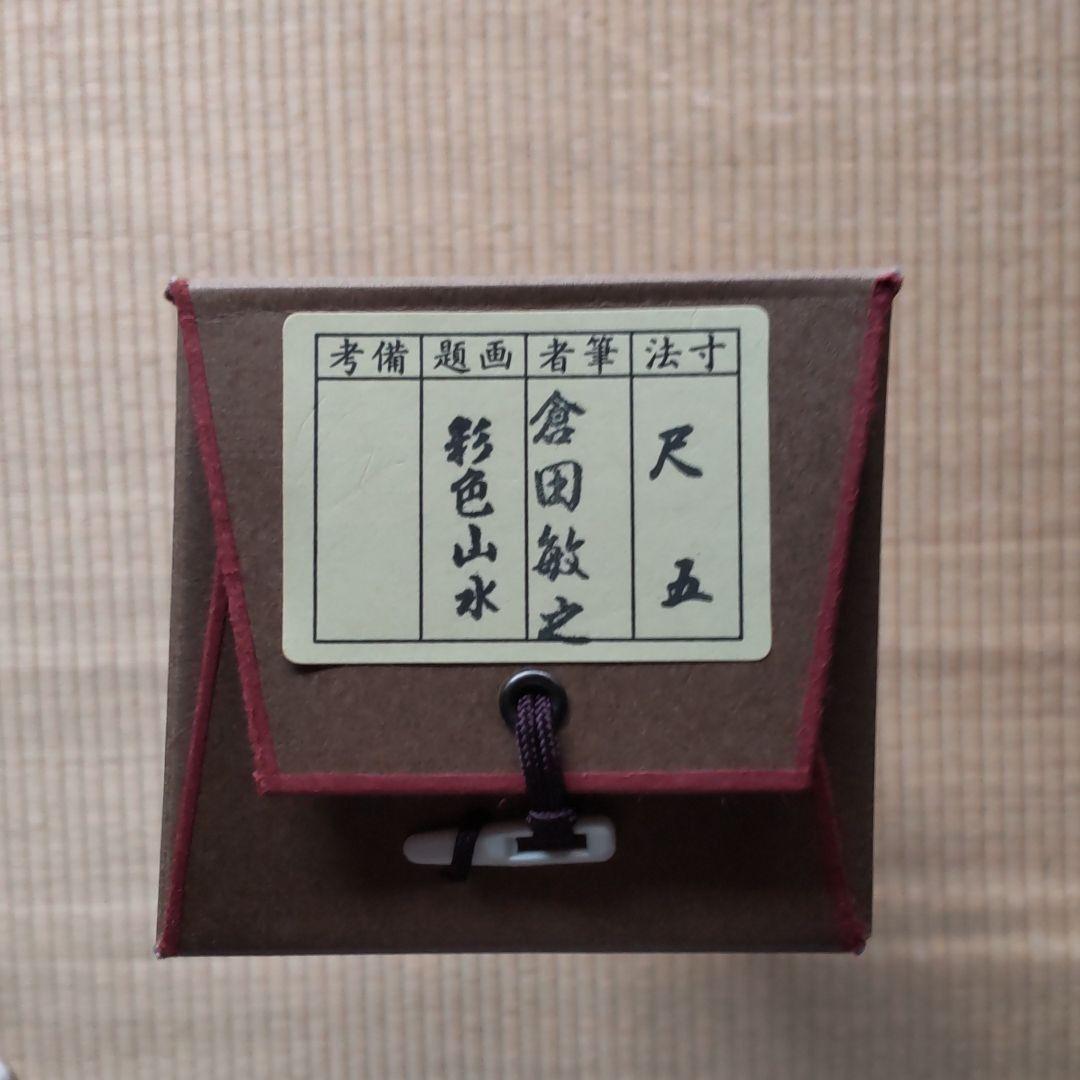 寸法
尺五
筆者
倉田敏之
画題
彩色山水
備考